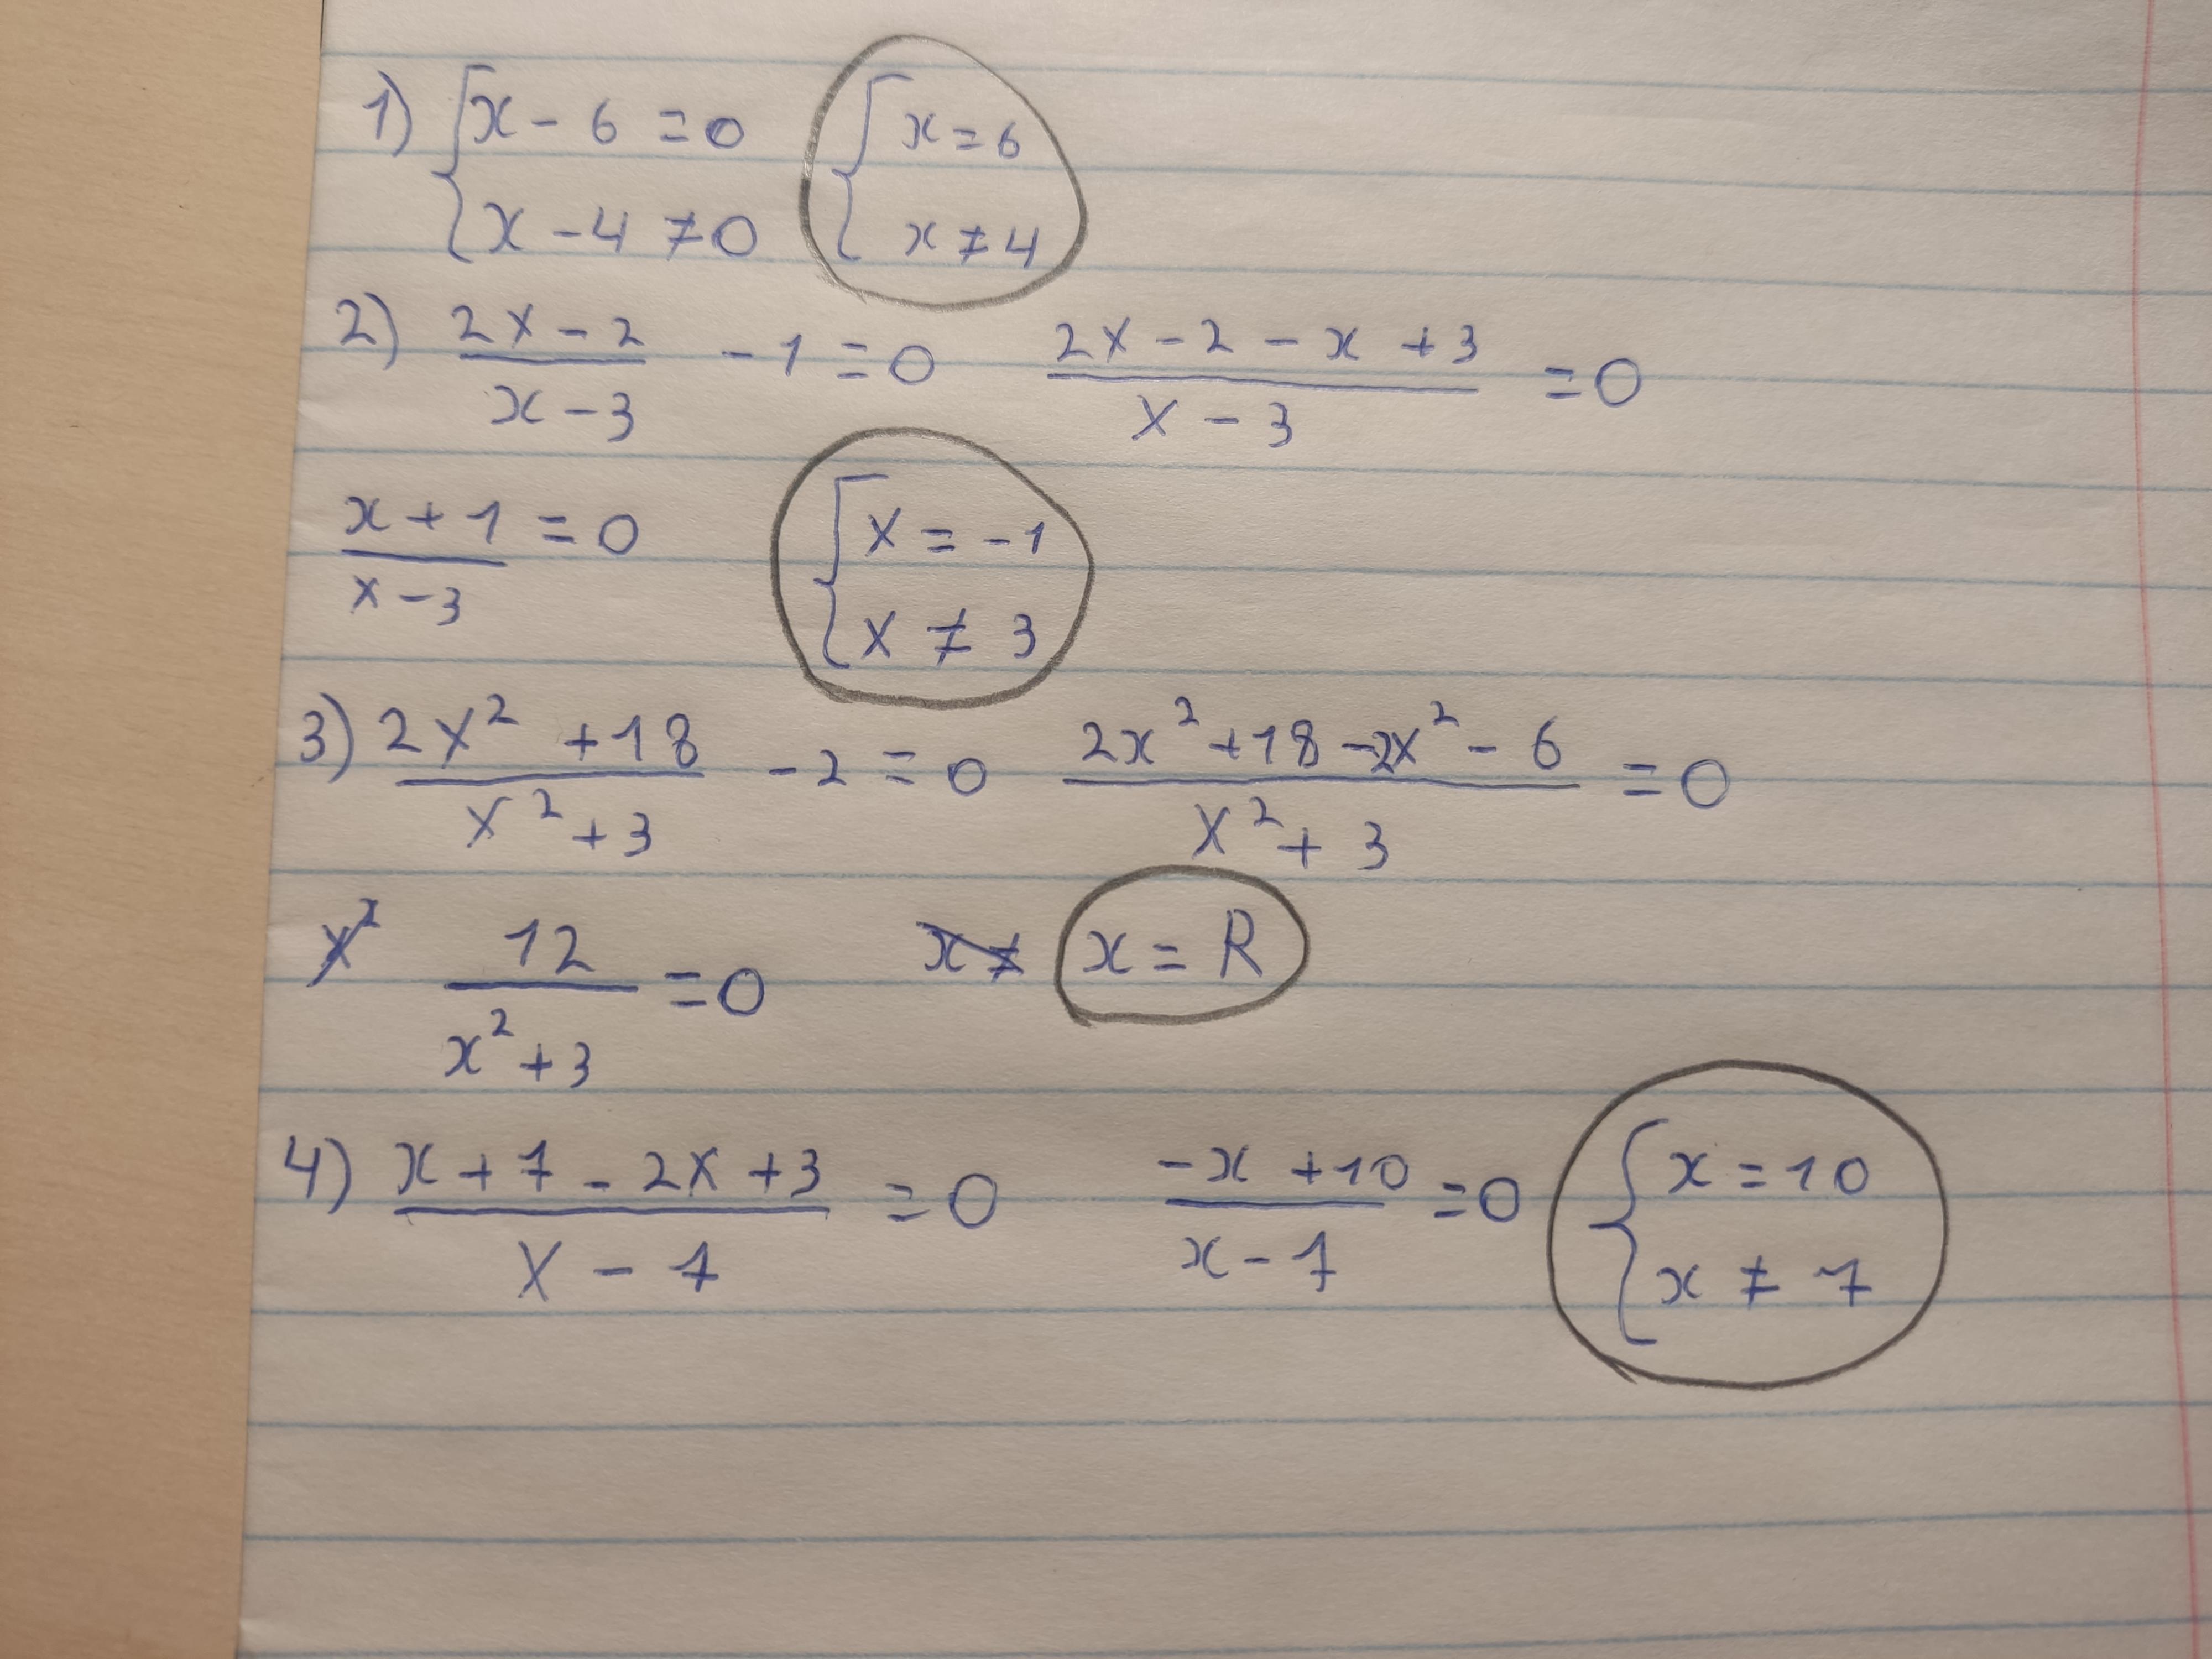 1) { x - 6 = 0   { x = 6
{ x - 4 ≠ 0   { x ≠ 4
2) (2x - 2)/(x - 3) - 1 = 0   (2x - 2 - x + 3)/(x - 3) = 0
(x + 1)/(x - 3) = 0   { x = -1
{ x ≠ 3
3) (2x² + 18)/(x² + 3) - 2 = 0   (2x² + 18 - 2x² - 6)/(x² + 3) = 0
x²   12/(x² + 3) = 0   x ≠   x = R
4) (x + 7 - 2x + 3)/(x - 7) = 0   (-x + 10)/(x - 7) = 0   { x = 10
{ x ≠ 7